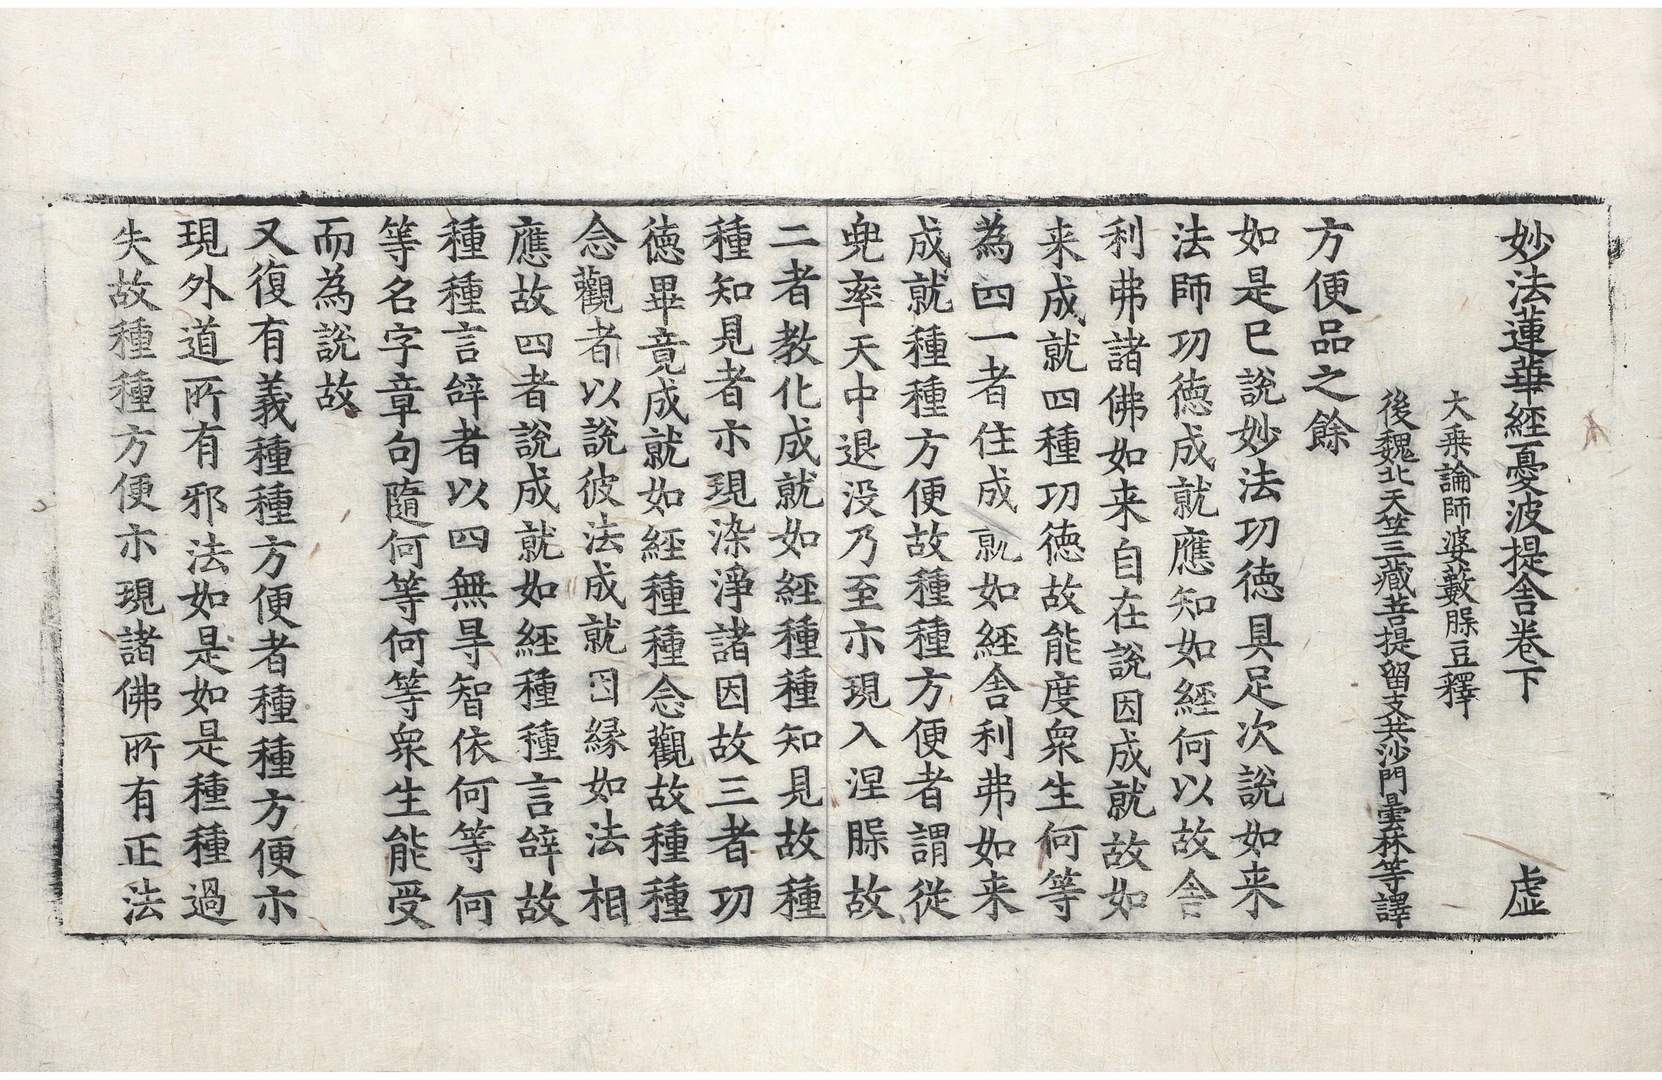 妙法蓮華經憂波提舍卷下 虛
大乘論師婆藪槃豆釋
後魏北天竺三藏菩提留支共沙門曇林等譯
方便品之餘
如是已說妙法功德具足次說如来
法師功德成就應知如經何以故舍
利弗諸佛如来自在說因成就故如
来成就四種功德故能度衆生何等
為四一者住成就如經舍利弗如来
成就種種方便故種種方便者謂從
兜率天中退没乃至示現入涅槃故
二者教化成就如經種種知見故種
種知見者示現染淨諸因故三者功
德畢竟成就如經種種念觀故種種
念觀者以說彼法成就因縁如法相
應故四者說成就如經種種言辝故
種種言辝者以四無㝵智依何等何
等名字章句隨何等何等衆生能受
而為說故
又復有義種種方便者種種方便示
現外道所有邪法如是如是種種過
失故種種方便示現諸佛所有正法